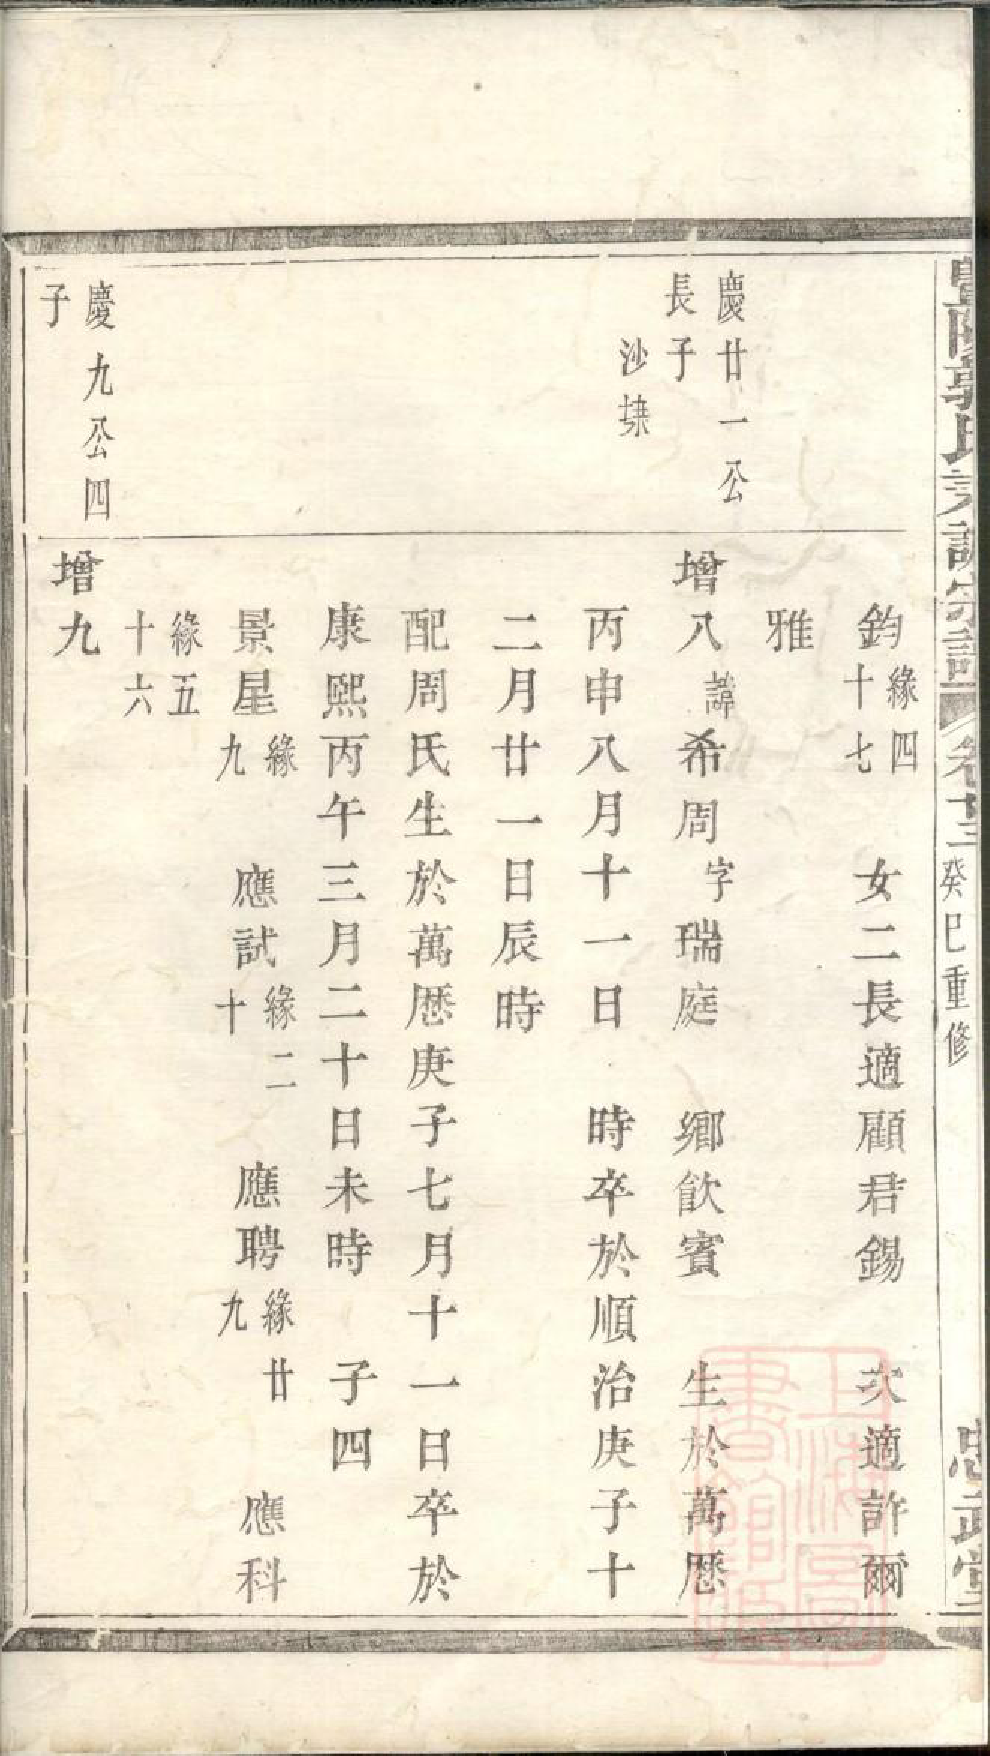 豐陽郭氏 譜宗譜 卷 癸巳重修 忠武堂
鈞緣四十七 女二長適顧君錫 次適許爾
雅
慶廿一公
長子
沙𡋾
增八諱希周字瑞庭 鄉飲賓 生於萬歷
丙申八月十一日 時卒於順治庚子十
二月廿一日辰時
配周氏生於萬歷庚子七月十一日卒於
康熙丙午三月二十日未時 子四
景星緣九 應試緣二十 應聘緣廿九 應科
緣五十六
慶九公四
子
增九
上海圖書館藏